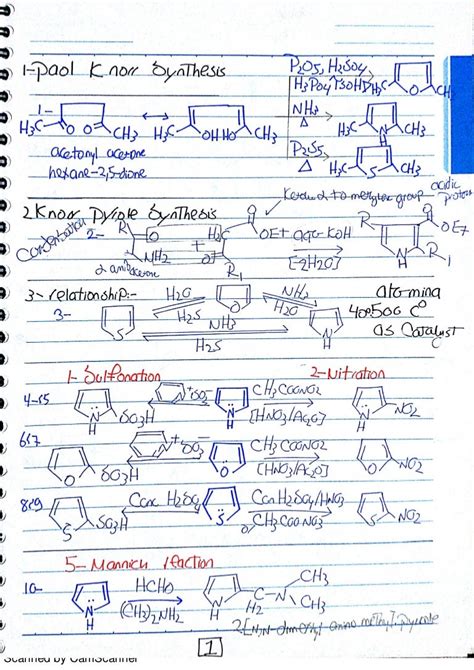 1-paol Knorr Synthesis
P2O5, H2SO4
H3PO4, TSOH
1-
H3C O O CH3
H3C OH HO CH3
H3C O CH3
NH3
Δ
H3C N H CH3
P2S5
Δ
H3C S CH3
acetonyl acetone
hexane-2,5-dione
2 Knorr Pyrole Synthesis
acidic proton
condensation
2-
R O
NH2
H2C O
O R1
+
OET
aqa-KOH
[-2H2O]
R
O
OET
N H R1
3-relationship:-
3-
H2O
H2S
O
NH3
H2O
NH3
H2S
S
N H
alomina
400500 C°
as Catalyst
1- Sulfonation
2-Nitration
4-15
N H SO3H
+ SO3-
N H
CH3COONO2
[HNO3/Ac2O]
N H NO2
6,17
O SO3H
+ SO3-
O
CH3COONO2
[HNO3/Ac2O]
O NO2
8,29
S SO3H
Conc H2SO4
S
Con H2SO4/HNO3
o/CH3COONO3
S NO2
5- Mannich reaction
10-
N H
HCHO
(CH3)2NH2
N H C H2 N CH3 CH3
2-[N,N-dimethyl amino methyl]-pyrrole
1
Scanned by CamScanner